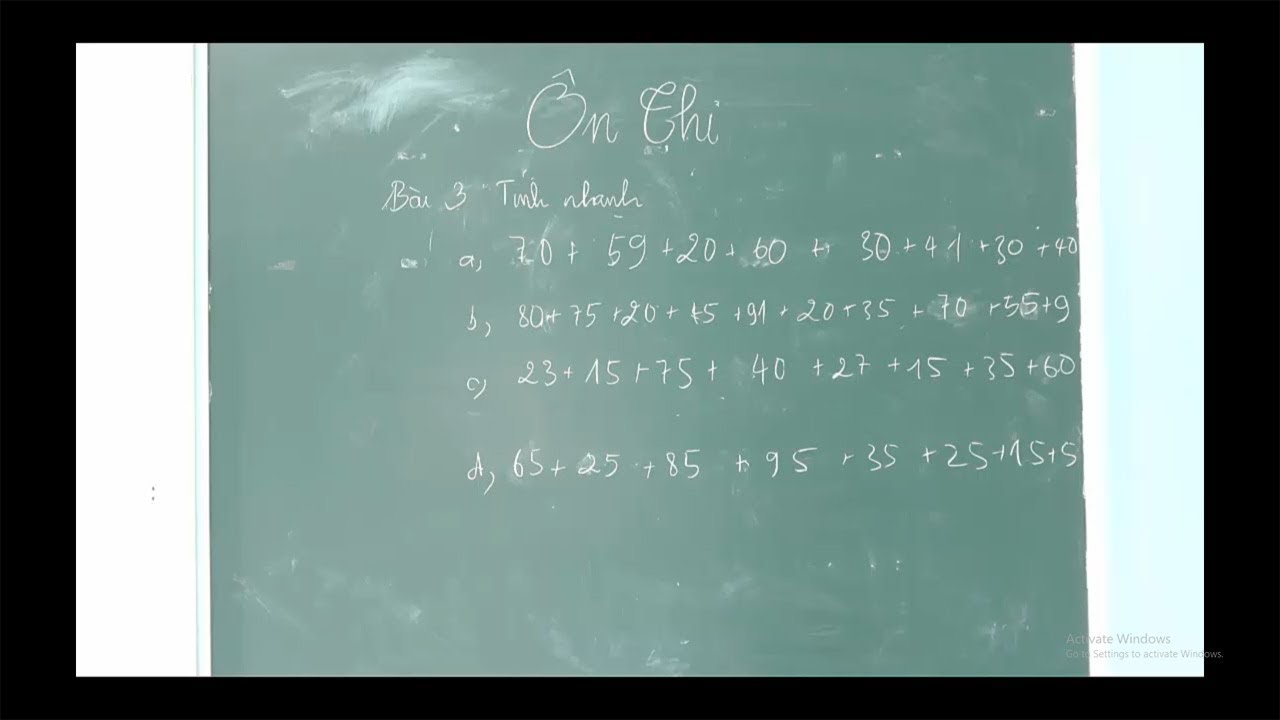 Ôn Thi
Bài 3 Tính nhanh
a, 70 + 59 + 20 + 60 + 30 + 41 + 30 + 40
b, 80 + 75 + 20 + 45 + 91 + 20 + 35 + 70 + 55 + 9
c, 23 + 15 + 75 + 40 + 27 + 15 + 35 + 60
d, 65 + 25 + 85 + 95 + 35 + 25 + 15 + 5
Activate Windows
Go to Settings to activate Windows.